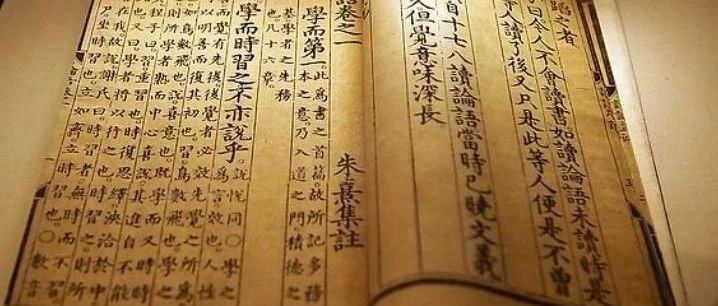 蹈之者
曰今人不會讀書如讀論語未讀時是
人讀了後又只是此等人便是不曾
自十七八讀論語當時已曉文義
久但覺意味深長
語卷之一
朱熹集註
學而第一
此為書之首篇故所記多務
本之意乃入道之門積德之
基學者之先務
也凡十六章
學而時習之不亦說乎
說悅同○學之
為言效也人性
而覺有先後後覺者必效先覺之所為
以明善而復其初也習鳥數飛也學之
如鳥數飛也說喜意也既學而又時時
則所學者熟而中心喜說其進自不能
程子曰習重習也時復思繹浹洽於中
也又曰學者將以行之也時習之則所
在我故說謝氏曰時習者無時而不習
尸坐時習也立如齊立時習也○數音